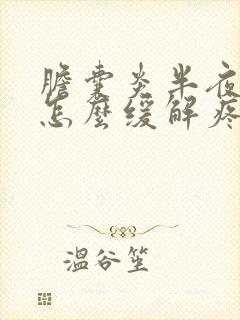 膽囊炎半夜
怎麼緩解疼
溫谷笙